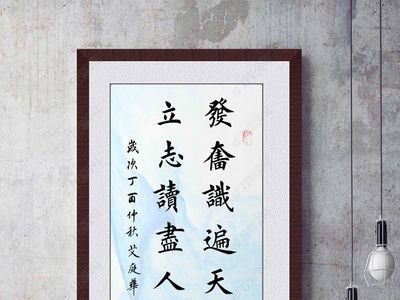 發奮識遍天
立志讀盡人
歲次丁酉仲秋艾庭華